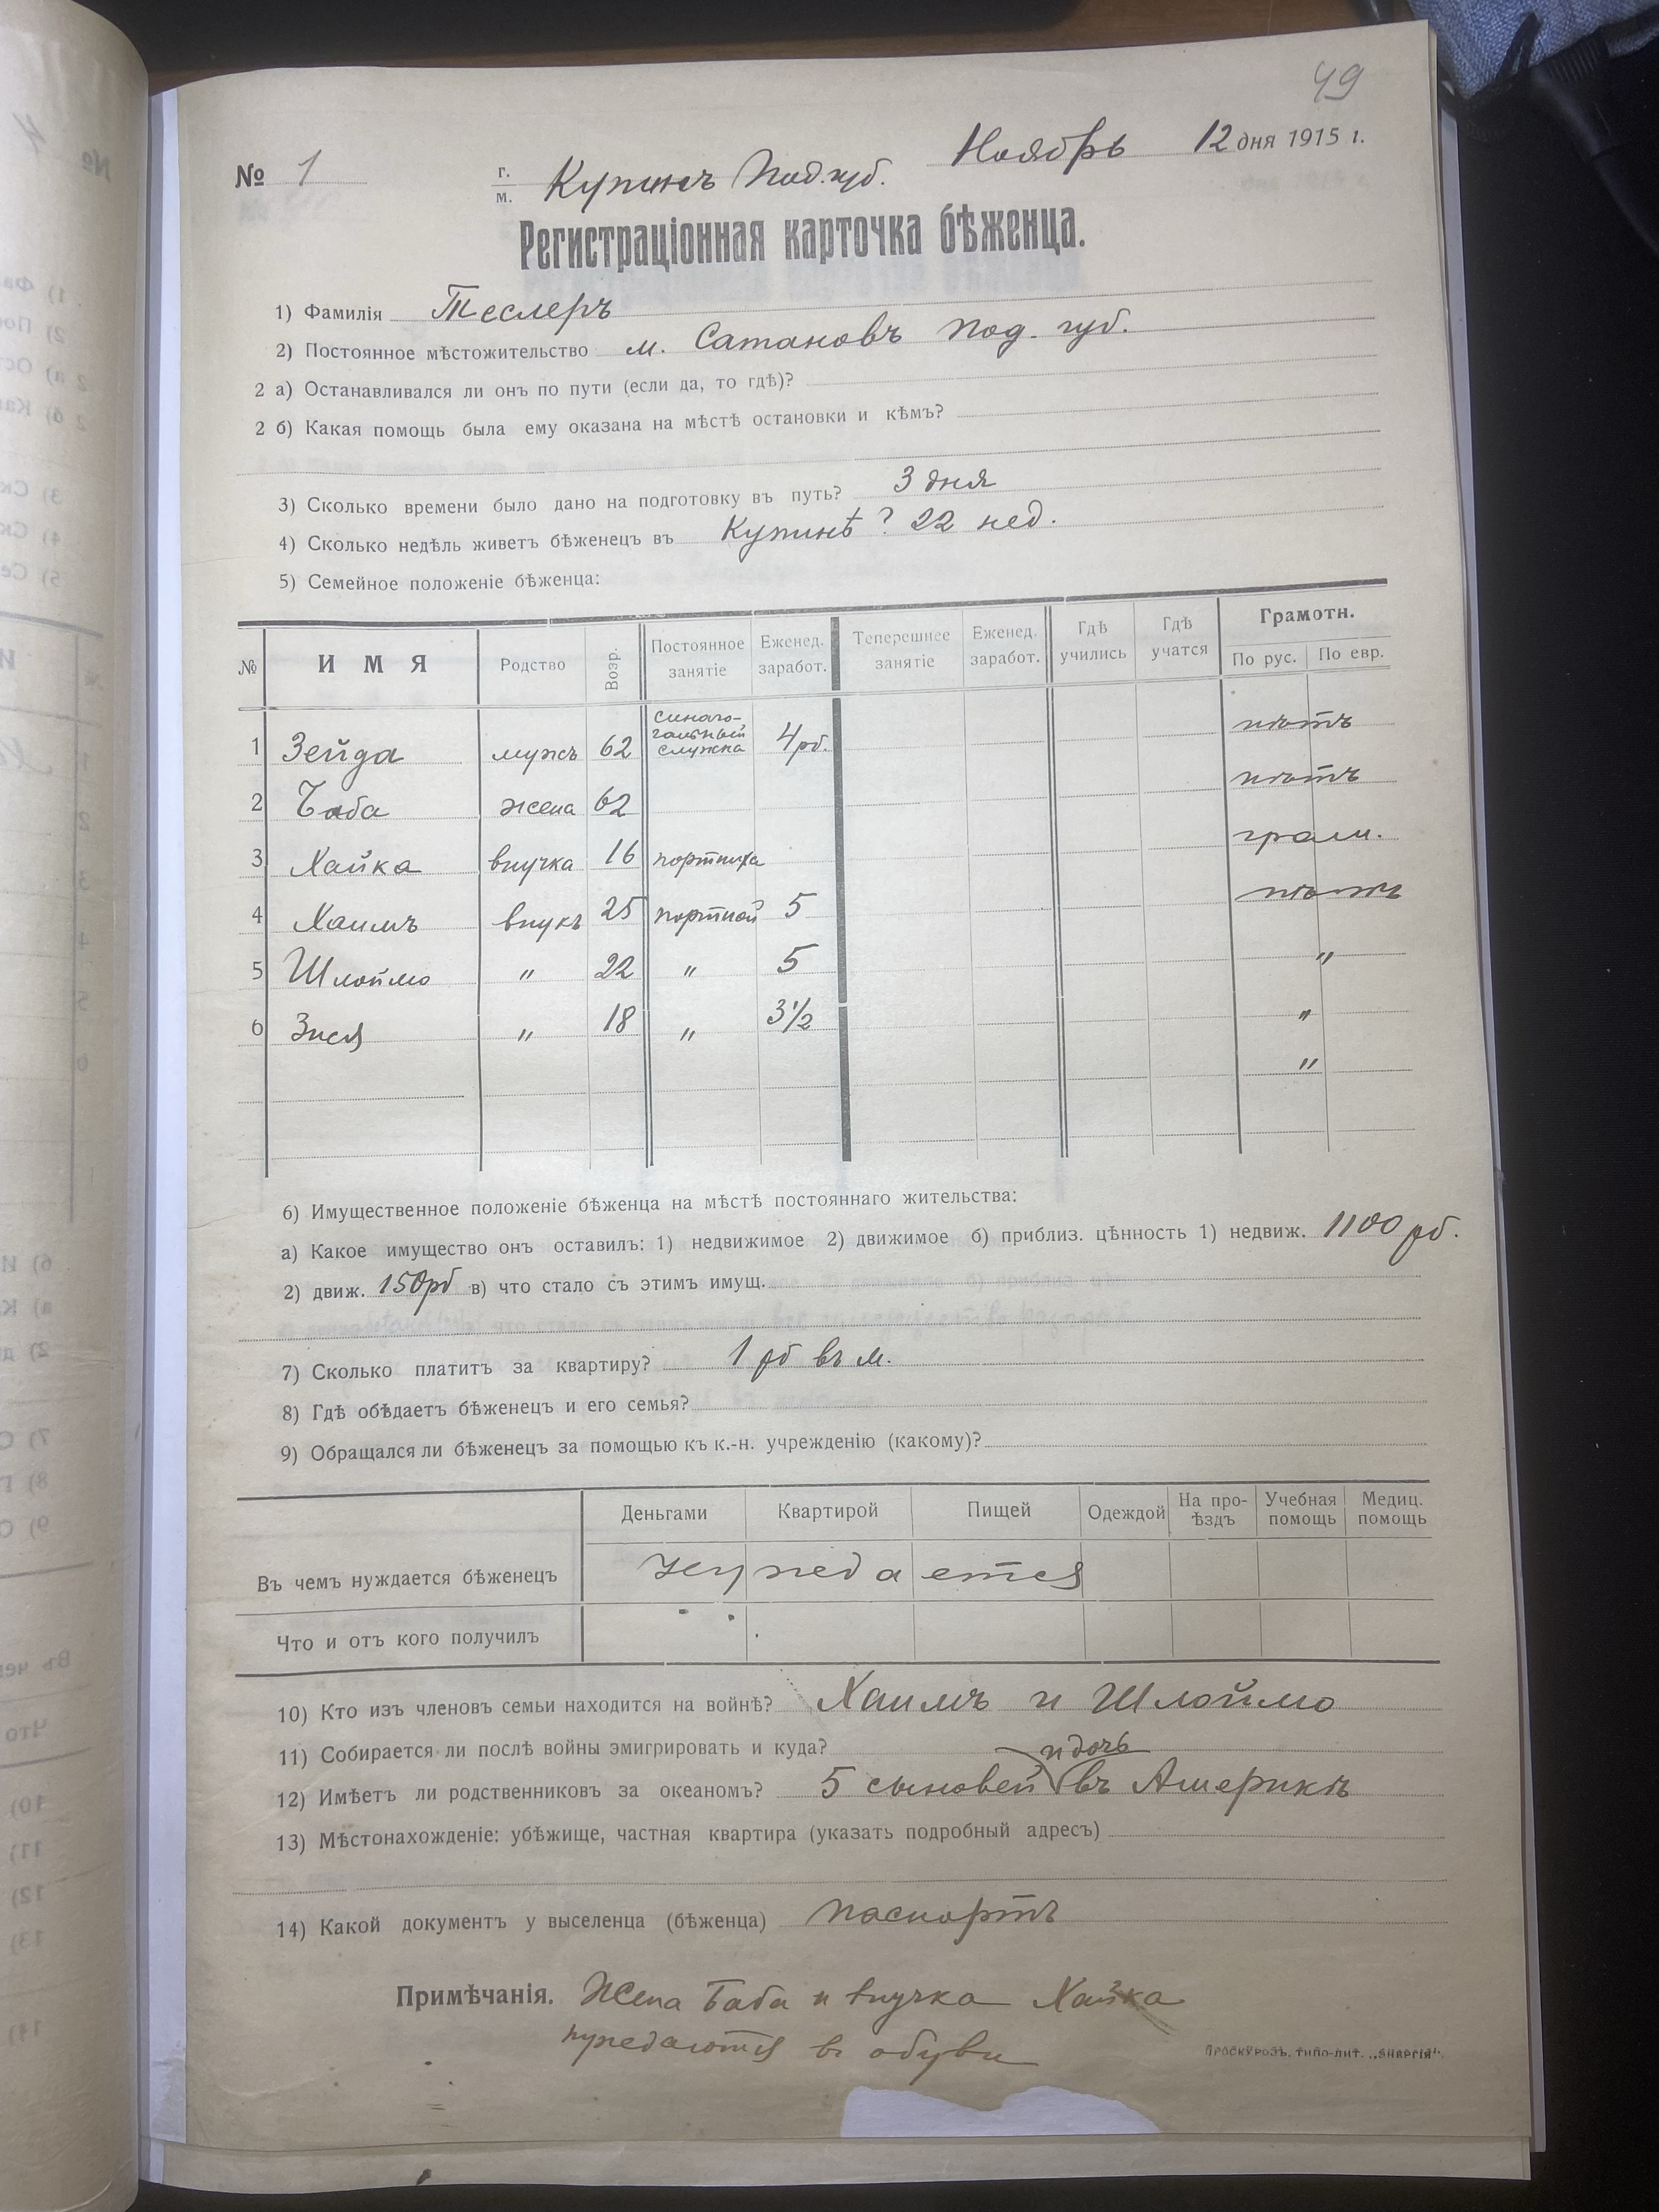 49
№ 1 г. м. Купинъ Под. губ. Ноябрь 12 дня 1915 г.
Регистраціонная карточка бѣженца.
1) Фамилія Теслеръ
2) Постоянное мѣстожительство м. Сатановъ Под. губ.
2 а) Останавливался ли онъ по пути (если да, то гдѣ)?
2 б) Какая помощь была ему оказана на мѣстѣ остановки и кѣмъ?
3) Сколько времени было дано на подготовку въ путь? 3 дня
4) Сколько недѣль живетъ бѣженецъ въ Купинѣ? 22 нед.
5) Семейное положеніе бѣженца:
№ ИМЯ Родство Возр. Постоянное занятіе Еженед. заработ. Теперешнее занятіе Еженед. заработ. Гдѣ учились Гдѣ учатся Грамотн. По рус. По евр.
1 Зейда мужъ 62 синаго-гальный служка 4 рб. нѣтъ
2 Баба жена 62 нѣтъ
3 Хайка внучка 16 портниха грам.
4 Хаимъ внукъ 25 портной 5 нѣтъ
5 Шлоймо " 22 " 5 "
6 Зися " 18 " 3½ "
"
6) Имущественное положеніе бѣженца на мѣстѣ постояннаго жительства:
а) Какое имущество онъ оставилъ: 1) недвижимое 2) движимое б) приблиз. цѣнность 1) недвиж. 1100 рб.
2) движ. 150 рб в) что стало съ этимъ имущ.
7) Сколько платитъ за квартиру? 1 рб въ м.
8) Гдѣ обѣдаетъ бѣженецъ и его семья?
9) Обращался ли бѣженецъ за помощью къ к.-н. учрежденію (какому)?
Деньгами Квартирой Пищей Одеждой На про-ѣздъ Учебная помощь Медиц. помощь
Въ чемъ нуждается бѣженецъ нуждается
Что и отъ кого получилъ
10) Кто изъ членовъ семьи находится на войнѣ? Хаимъ и Шлоймо
11) Собирается ли послѣ войны эмигрировать и куда?
и дочь
12) Имѣетъ ли родственниковъ за океаномъ? 5 сыновей въ Америкѣ
13) Мѣстонахожденіе: убѣжище, частная квартира (указать подробный адресъ)
14) Какой документъ у выселенца (бѣженца) паспортъ
Примѣчанія. Жена Баба и внучка Хайка
нуждаются въ обуви
Проскуровъ, типо-лит. „Энергія“.